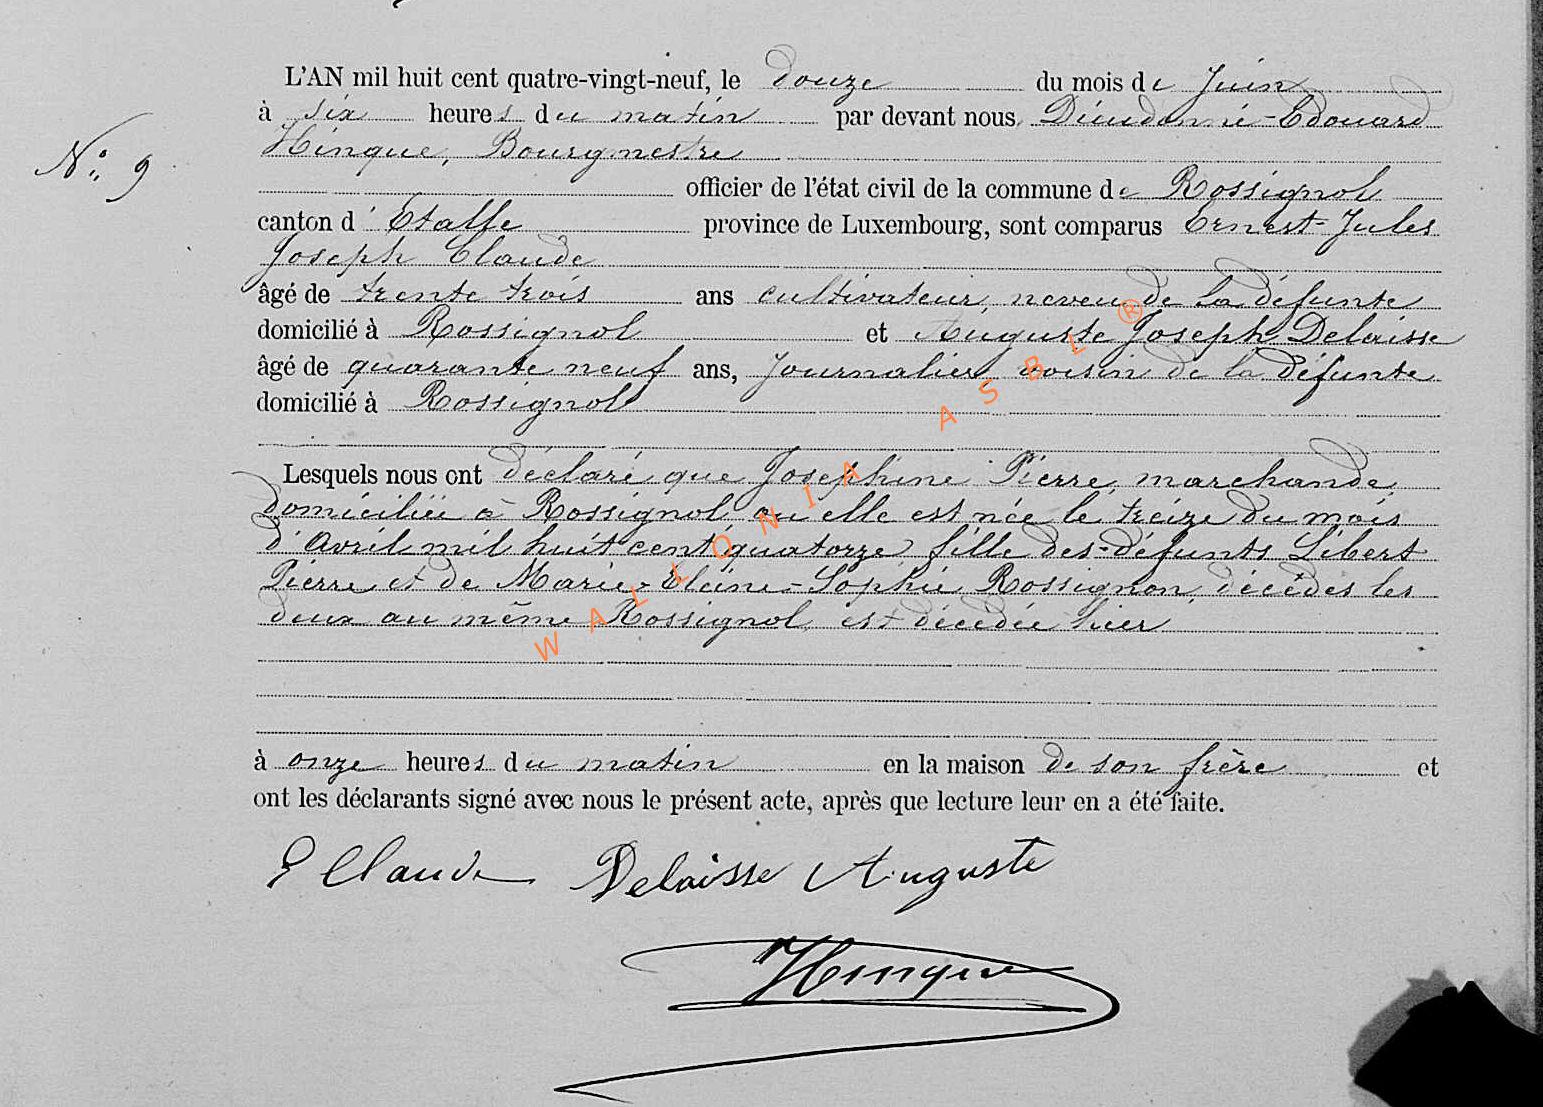 L'AN mil huit cent quatre-vingt-neuf, le douze du mois de Juin
à six heures du matin par devant nous Dieudonné-Edouard
Hinque, Bourgmestre
N° 9
officier de l'état civil de la commune de Rossignol
canton d'Etalle province de Luxembourg, sont comparus Ernest-Jules
Joseph Claude
âgé de trente trois ans cultivateur, neveu de la défunte
domicilié à Rossignol et Auguste Joseph Delaisse
âgé de quarante neuf ans, Journalier, voisin de la défunte
domicilié à Rossignol
Lesquels nous ont déclaré que Josephine Pierre, marchande,
domiciliée à Rossignol, ou elle est née le treize du mois
d'Avril mil huit cent quatorze, fille des défunts Libert
Pierre et de Marie-Eleine-Sophie Rossignon, décédés les
deux au même Rossignol, est décédée hier
à onze heures du matin en la maison de son frère et
ont les déclarants signé avec nous le présent acte, après que lecture leur en a été faite.
E Claude Delaisse Auguste
Hinque
WALLONIA ASBL ®